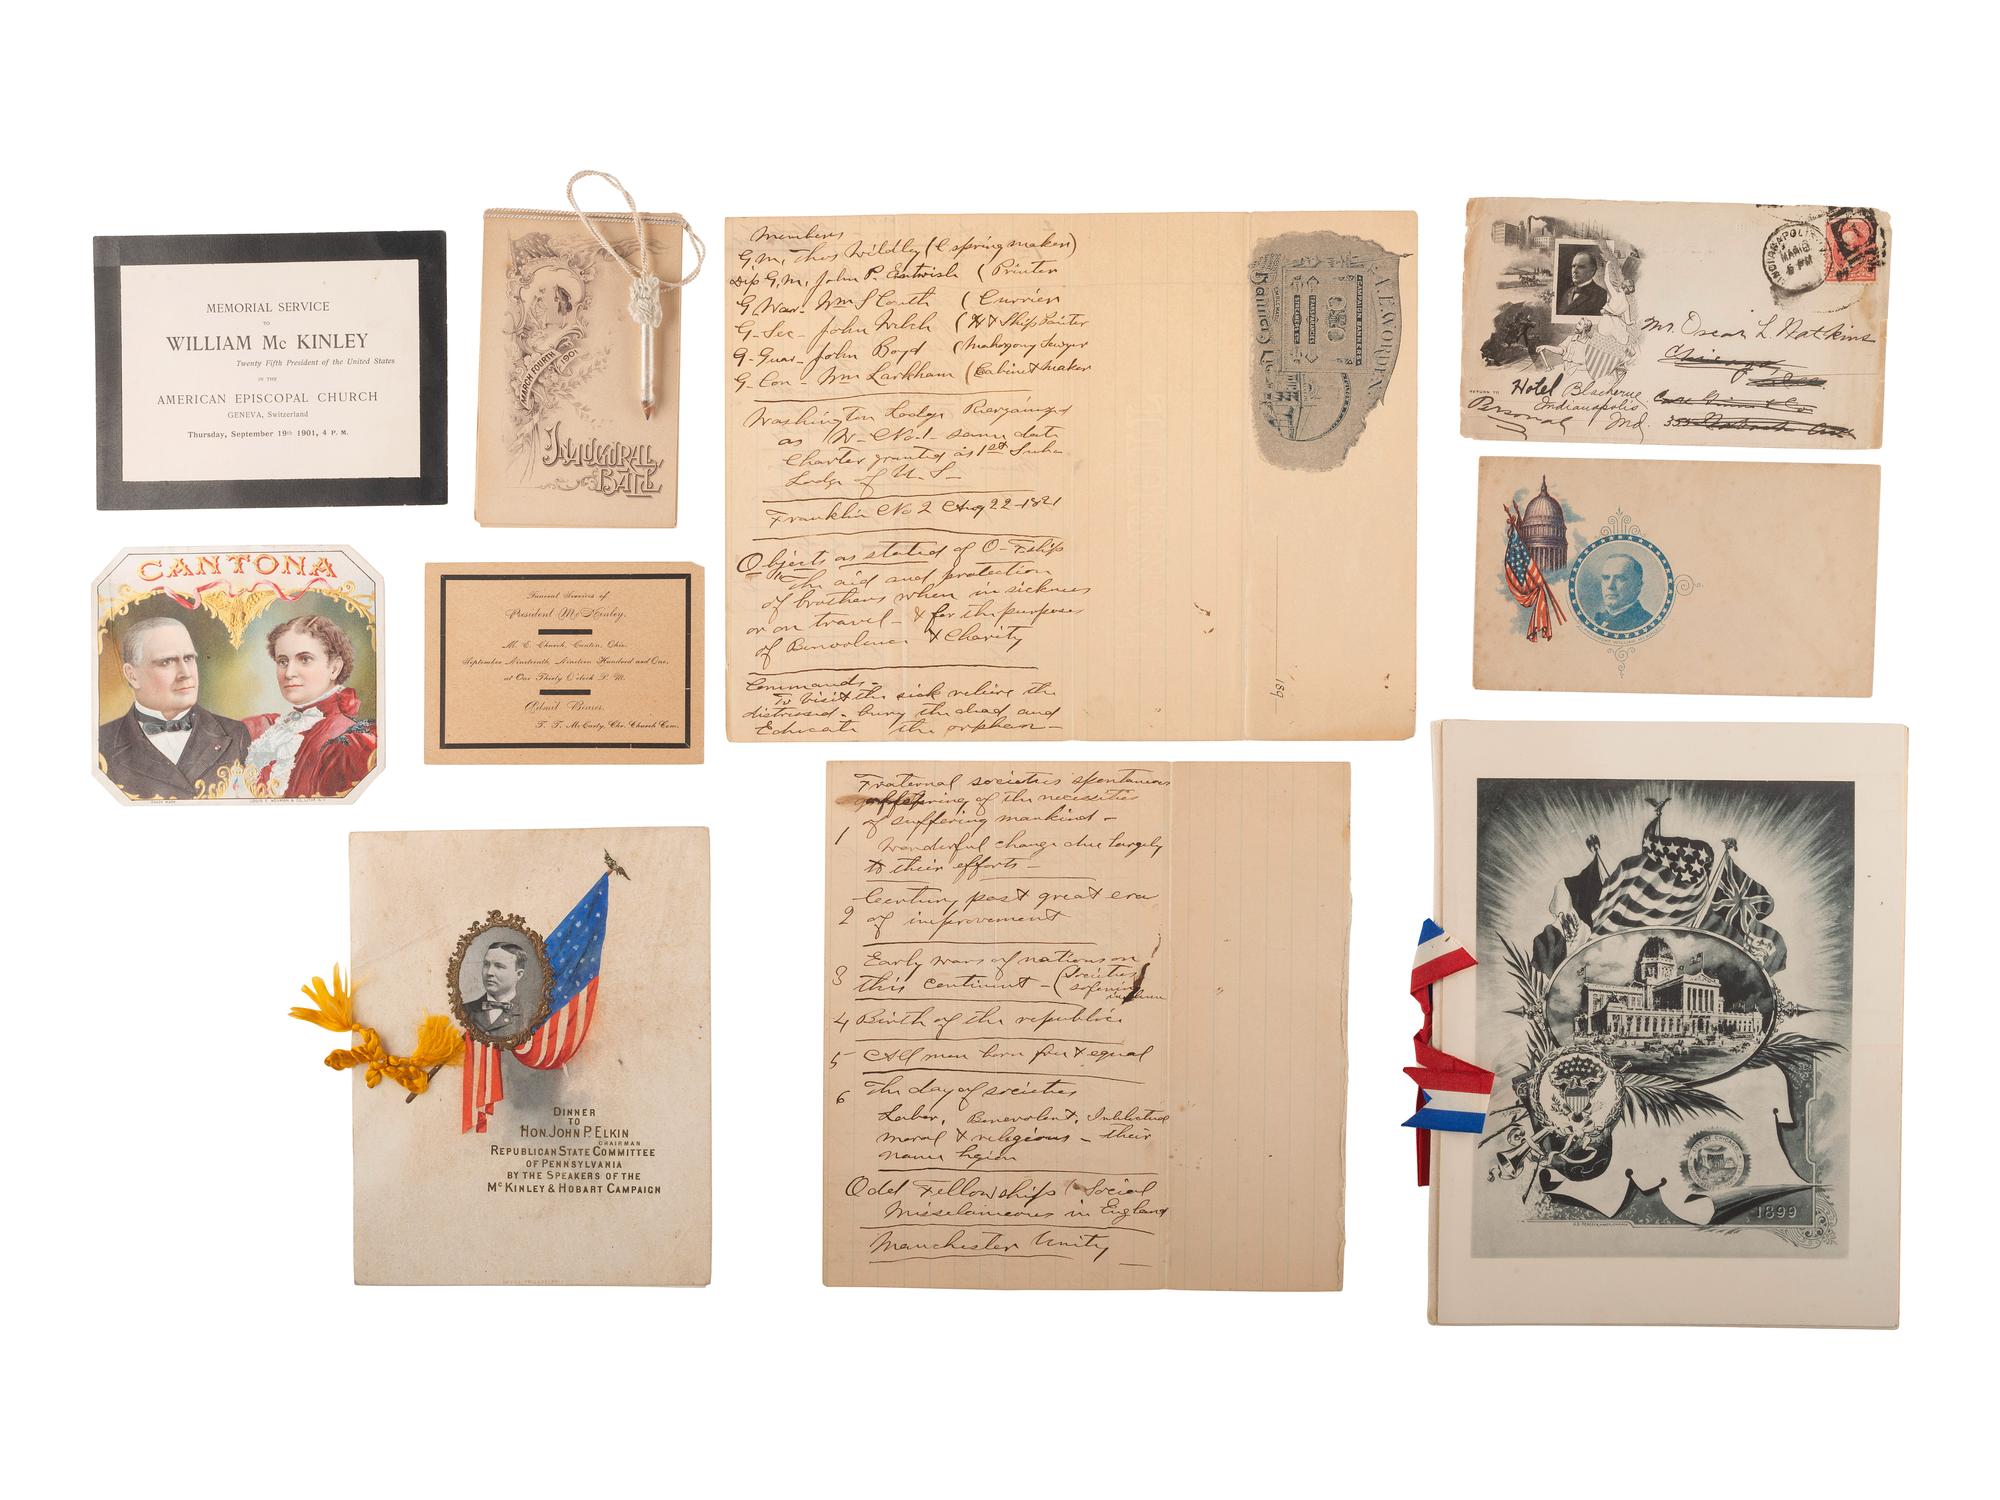 MEMORIAL SERVICE
TO
WILLIAM Mc KINLEY
Twenty Fifth President of the United States
IN THE
AMERICAN EPISCOPAL CHURCH
GENEVA, Switzerland
Thursday, September 19th 1901, 4 P. M.
MARCH FOURTH
1901
INAUGURAL
BALL
CANTONA
Funeral Services of
President McKinley,
M. E. Church, Canton, Ohio.
September Nineteenth, Nineteen Hundred and One,
at One Thirty O'clock P. M.
Admit Bearer,
T. T. McCarty, Chr. Church Com.
DINNER
TO
HON. JOHN P. ELKIN
CHAIRMAN
REPUBLICAN STATE COMMITTEE
OF PENNSYLVANIA
BY THE SPEAKERS OF THE
McKINLEY & HOBART CAMPAIGN
Members
G. M. Thos Wildey (C spring maker)
Dip G. M. John P. Entwisle (Printer
G War- Wm S Couth (Currier
G- Sec- John Welch (H & Ship Painter
G- Guar- John Boyd (Mahogony Sawyer
G- Con- Wm Larkham (Cabinet maker
Washington Lodge
as W- No. 1- same date
Charter granted as 1st Sub-
Lodge of U. S-
Franklin No 2 Aug 22-1821
Objects as stated of O- Fship
The aid and protection
of brothers when in sickness
or on travel- & for the purposes
of Benevolence & Charity
Commands-
To Visit the sick relieve the
distressed- bury the dead and
Educate the orphan-
A. E. WORDEN
CAMPAIGN BANNERS
Banner
189
Fraternal societies spontaneous
offspring of the necessities
of suffering mankind-
1 Wonderful change due largely
to their efforts-
2 Century past great era
of improvement
3 Early wars of nations on
this continent- (Societies
softening
4 Birth of the republic
5 All men born free & equal
6 The day of societies
Labor, Benevolent, Intellectual
moral & religious- their
name legion
Odd Fellowships (Social
Misselaineous in England
Manchester Unity
INDIANAPOLIS
MAR
6 PM
Mr. Oscar L. Watkins
Chicago,
RETURN TO
Hotel Blacherne
Indianapolis
Ind.
Personal
CITY OF CHICAGO
1899